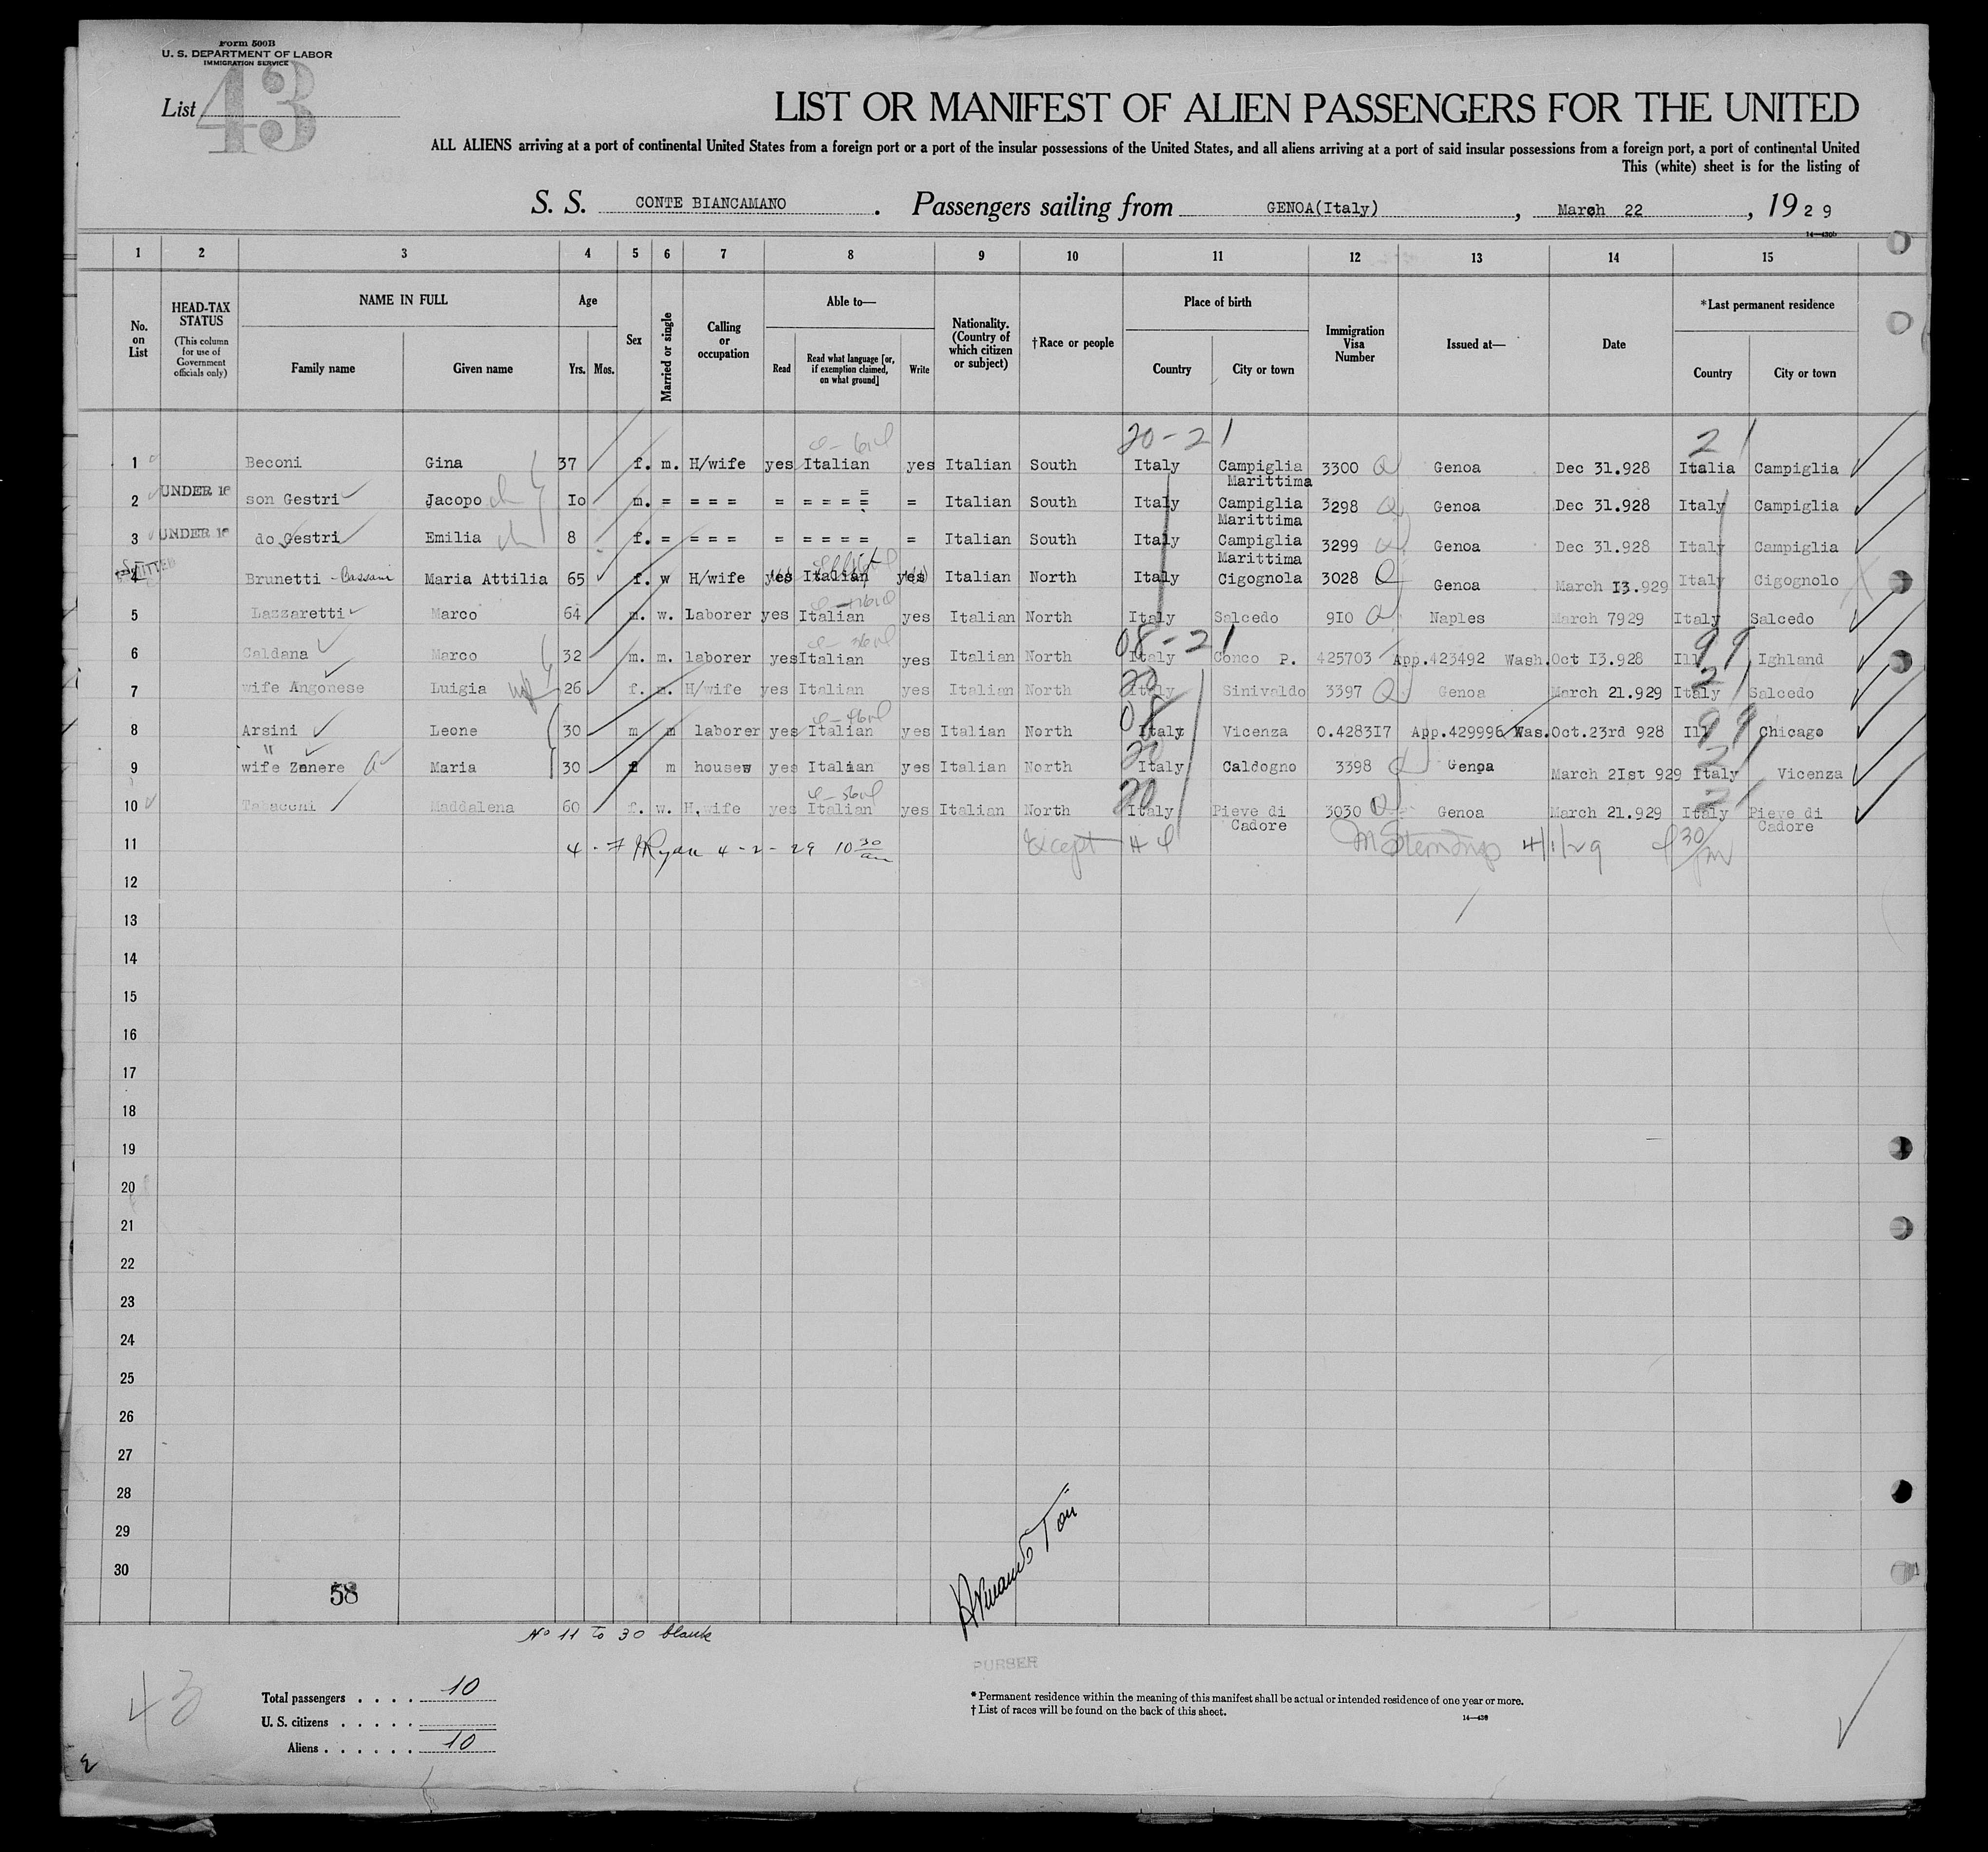 Form 500B
U. S. DEPARTMENT OF LABOR
IMMIGRATION SERVICE
List 43
LIST OR MANIFEST OF ALIEN PASSENGERS FOR THE UNITED
ALL ALIENS arriving at a port of continental United States from a foreign port or a port of the insular possessions of the United States, and all aliens arriving at a port of said insular possessions from a foreign port, a port of continental United
This (white) sheet is for the listing of
S. S. CONTE BIANCAMANO . Passengers sailing from GENOA(Italy) , March 22 , 1929
14—430b
1 2 3 4 5 6 7 8 9 10 11 12 13 14 15
No. on List
HEAD-TAX STATUS
(This column for use of Government officials only)
NAME IN FULL
Family name Given name
Age
Yrs. Mos.
Sex
Married or single
Calling or occupation
Able to—
Read Read what language [or, if exemption claimed, on what ground] Write
Nationality. (Country of which citizen or subject)
†Race or people
Place of birth
Country City or town
Immigration Visa Number
Issued at—
Date
*Last permanent residence
Country City or town
20-21 21
1 Beconi Gina 37 f. m. H/wife yes Italian yes Italian South Italy Campiglia Marittima 3300 Genoa Dec 31.928 Italia Campiglia
2 UNDER 16 son Gestri Jacopo Io m. = = = = = = = = = = Italian South Italy Campiglia Marittima 3298 Genoa Dec 31.928 Italy Campiglia
3 UNDER 16 do Gestri Emilia 8 f. = = = = = = = = = = Italian South Italy Campiglia Marittima 3299 Genoa Dec 31.928 Italy Campiglia
4 Brunetti - Bassani Maria Attilia 65 f. w H/wife yes Italian yes Italian North Italy Cigognola 3028 Genoa March I3.929 Italy Cigognolo
5 Lazzaretti Marco 64 m. w. Laborer yes Italian yes Italian North Italy Salcedo 9I0 Naples March 7929 Italy Salcedo
08-21 99
6 Caldana Marco 32 m. m. laborer yes Italian yes Italian North Italy Conco P. 425703 App.423492 Wash. Oct I3.928 Ill Ighland
20 21
7 wife Angonese Luigia 26 f. m. H/wife yes Italian yes Italian North Italy Sinivaldo 3397 Genoa March 21.929 Italy Salcedo
08 99
8 Arsini Leone 30 m m laborer yes Italian yes Italian North Italy Vicenza 0.4283I7 App.429996 Was. Oct.23rd 928 Ill Chicago
20 21
9 wife Zenere Maria 30 f m housew yes Italian yes Italian North Italy Caldogno 3398 Genoa March 2Ist 929 Italy Vicenza
20 21
10 Maddalena 60 f. w. H,wife yes Italian yes Italian North Italy Pieve di Cadore 3030 Genoa March 21.929 Italy Pieve di Cadore
11 Ryan 4-2-29 10 30 am Except 4/1/29 30
12
13
14
15
16
17
18
19
20
21
22
23
24
25
26
27
28
29
30
58
No 11 to 30 blank
PURSER
43
Total passengers . . . . 10
U. S. citizens . . . . .
Aliens . . . . . . 10
* Permanent residence within the meaning of this manifest shall be actual or intended residence of one year or more.
† List of races will be found on the back of this sheet.
14—430